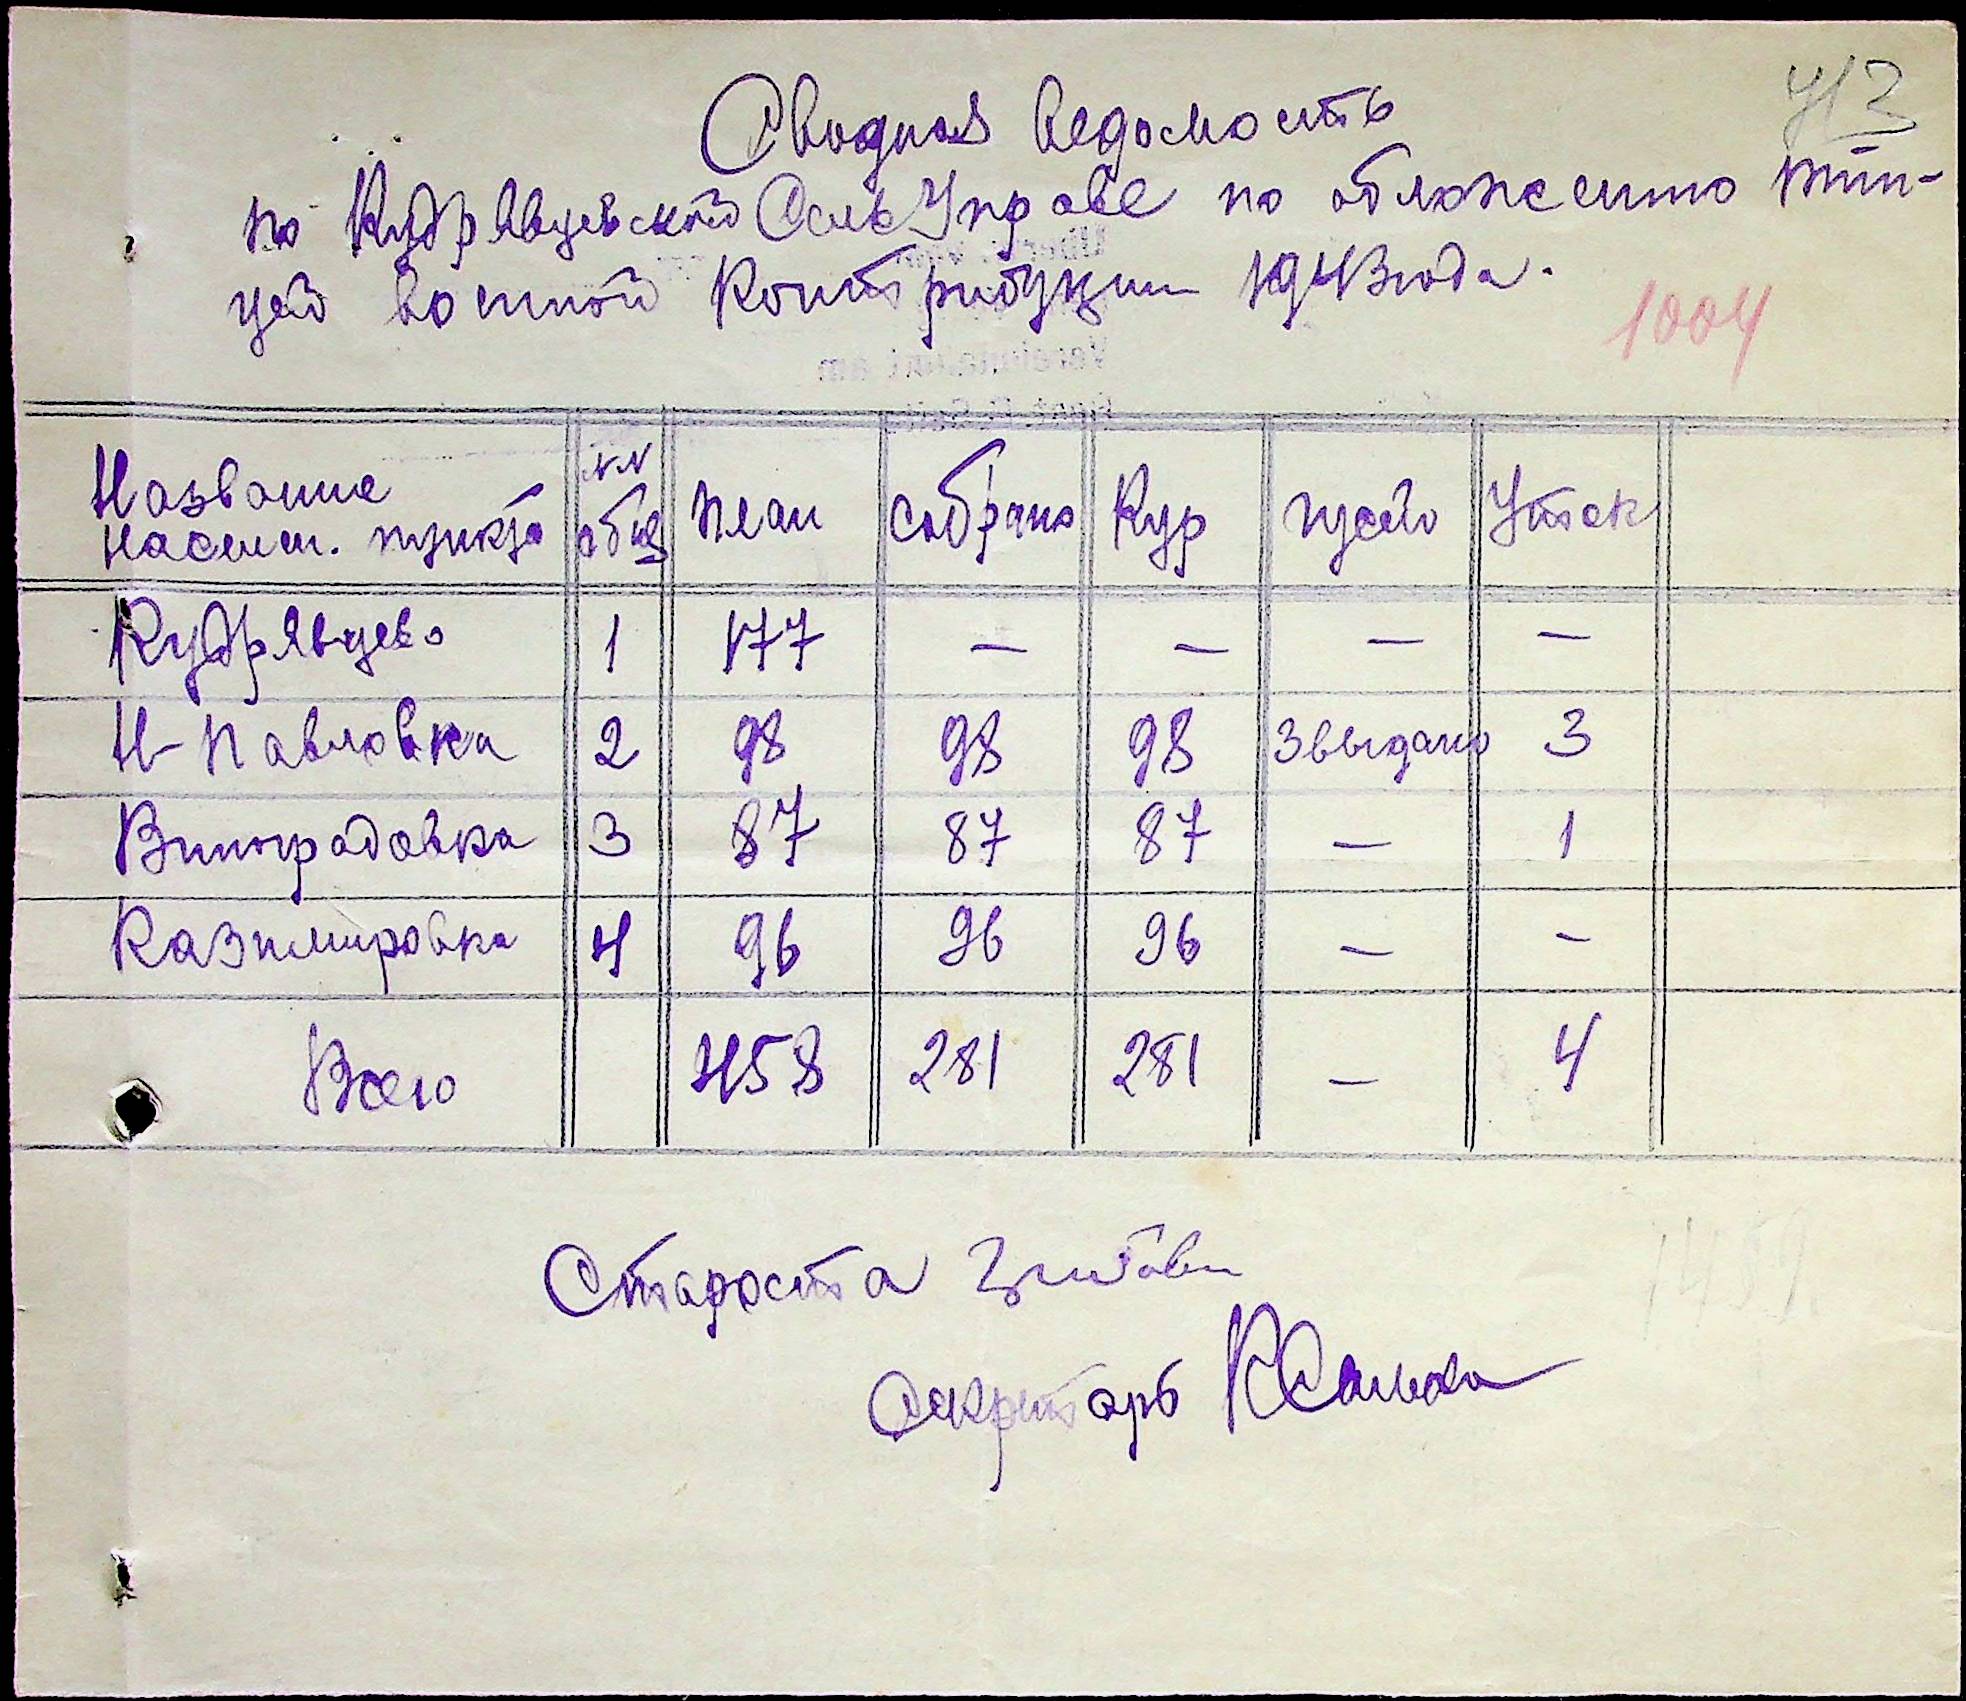 413
Сводная ведомость
по Кудрявцевской СельУправе по обложению пти-
цей военной контрибуции 1943 года.
1004
Название насел. пункта | №№ общ | План | собрано | Кур | гусей | Уток
Кудрявцево | 1 | 177 | — | — | — | —
Н-Павловка | 2 | 98 | 98 | 98 | 3 выдано | 3
Виноградовка | 3 | 87 | 87 | 87 | — | 1
Казимировка | 4 | 96 | 96 | 96 | — | -
Всего | 458 | 281 | 281 | — | 4
Староста
Секретарь